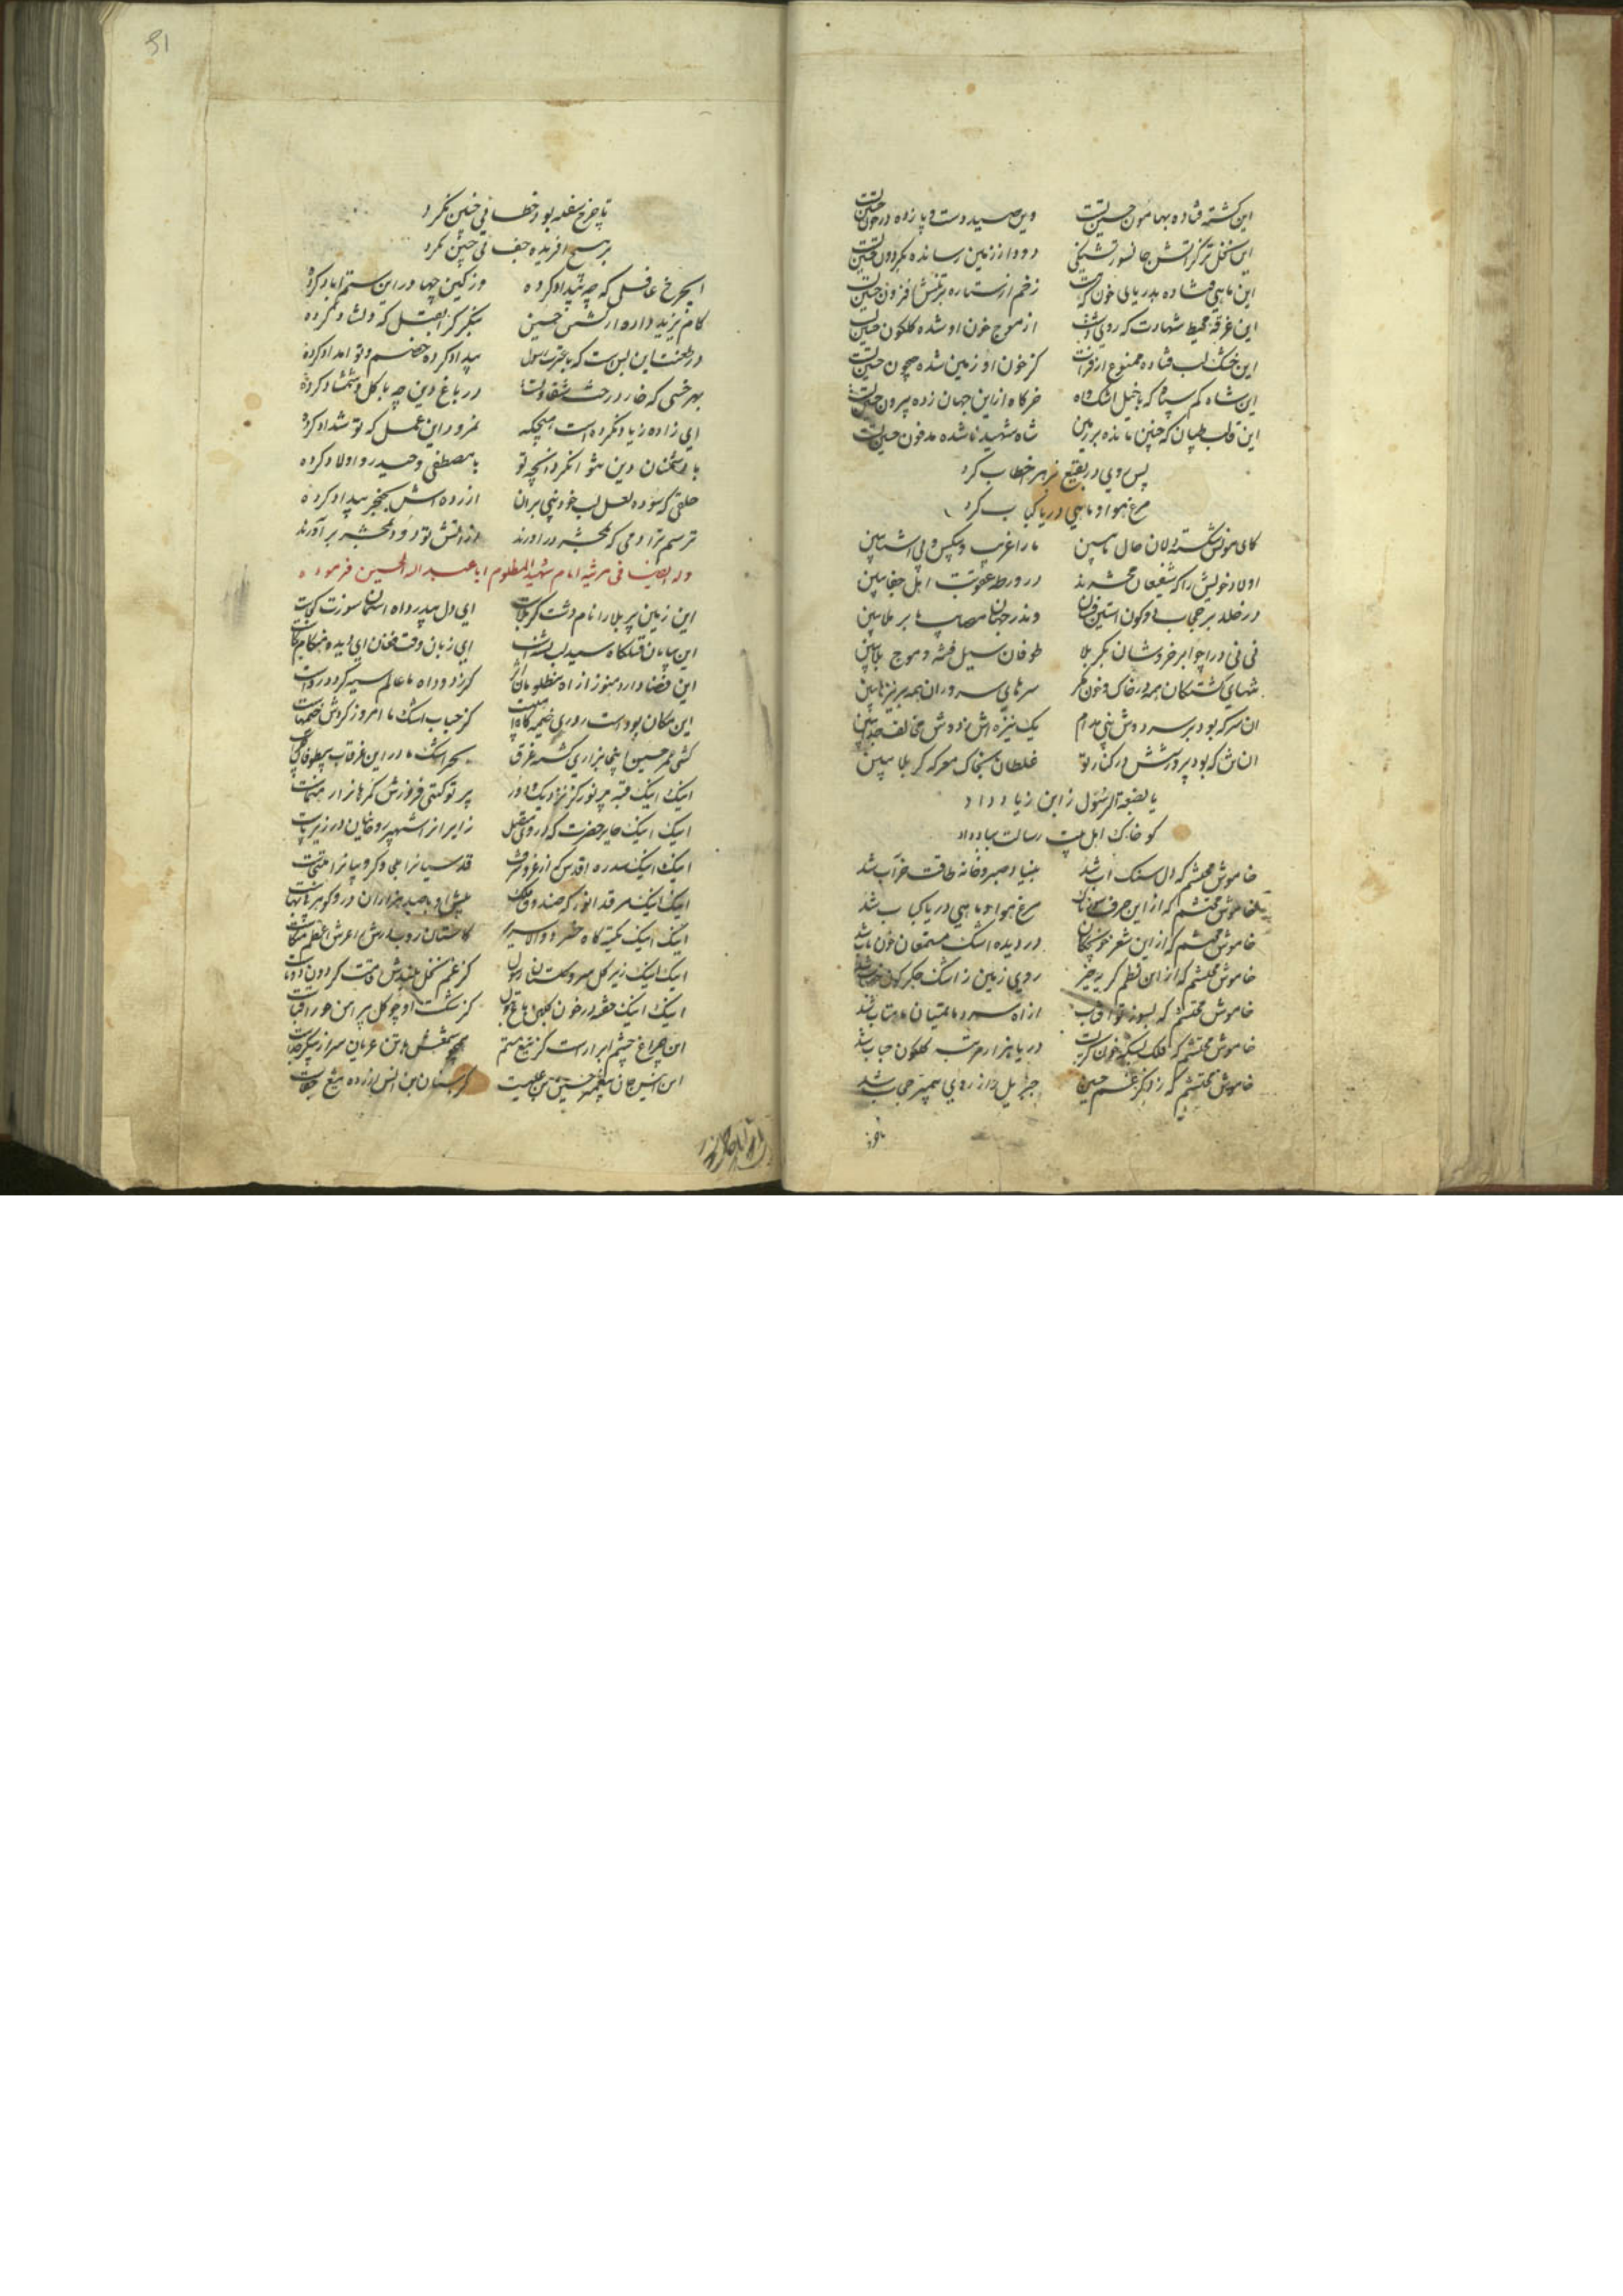 این کشته فتاده بهامون حسین تست وین صید دست و پا زده در خون حسین تست
این نخل تر کز آتش جانسوز تشنگی دود از زمین رسانده بگردون حسین تست
این ماهی فتاده بدریای خون که هست زخم از ستاره بر تنش افزون حسین تست
این غرقه محیط شهادت که روی دشت از موج خون او شده گلگون حسین تست
این خشک لب فتاده ممنوع از فرات کز خون او زمین شده جیحون حسین تست
این شاه کم سپاه که با خیل اشک و آه خرگاه از این جهان زده بیرون حسین تست
این قالب طپان که چنین مانده بر زمین شاه شهید ناشده مدفون حسین تست
پس روی در بقیع بزهرا خطاب کرد
مرغ هوا و ماهی دریا کباب کرد
کای مونس شکسته دلان حال ما ببین ما را غریب و بیکس و بی آشنا ببین
اولاد خویش را که شفیعان محشرند در ورطه عقوبت اهل جفا ببین
در خلد بر حجاب دو کون آستین فشان وندر جهان مصیبت ما بر ملا ببین
نی نی درا چو ابر خروشان بکربلا طوفان سیل فتنه و موج بلا ببین
تنهای کشتگان همه در خاک و خون نگر سرهای سروران همه بر نیزها ببین
ان سر که بود بر سر دوش نبی مدام یک نیزه اش ز دوش مخالف جدا ببین
ان تن که بود پرورشش در کنار تو غلطان بخاک معرکه کربلا ببین
یا بضعة الرسول ز ابن زیاد داد
کو خاک اهل بیت رسالت بباد داد
خاموش محتشم که دل سنگ آب شد بنیاد صبر و خانه طاقت خراب شد
خاموش محتشم که از این حرف سوزناک مرغ هوا و ماهی دریا کباب شد
خاموش محتشم که از این شعر خونچکان در دیده اشک مستمعان خون ناب شد
خاموش محتشم که از این نظم گریه خیز روی زمین ز اشک جگرگون خضاب شد
خاموش محتشم که بسوز تو آفتاب از آه سرد ماتمیان ماهتاب شد
خاموش محتشم که فلک بسکه خون گریست دریا هزار مرتبه گلگون حباب شد
خاموش محتشم که ز ذکر غم حسین جبریل را ز روی پیمبر حجاب شد
تا چرخ سفله بود خطائی چنین نکرد
بر هیچ آفریده جفائی چنین نکرد
ایچرخ غافلی که چه بیداد کرده وز کین چها در این ستم آباد کرده
کام یزید داده از کشتن حسین بنگر کرا بقتل که دلشاد کرده
در طعنت این بس است که با عترت رسول بیداد کرده خصم و تو امداد کرده
بهر خسی که خار درخت شقاوتست در باغ دین چه با گل و شمشاد کرده
ای زاده زیاد نکرده است هیچکه نمرود این عمل که تو شداد کرده
با دشمنان دین نتوان کرد انچه تو با مصطفی و حیدر و اولاد کرده
حلقی که سوده لعل لب خود نبی بران ازرده اش بخنجر بیداد کرده
ترسم ترا دمی که بمحشر در آورند از آتش تو دود بمحشر بر آورند
وله ایضا فی مرثیه امام شهید المظلوم ابا عبد الله الحسین فرموده
این زمین پر بلا را نام دشت کربلاست ای دل بیدرد آه آسمان سوزت کجاست
این بیابان قتلگاه سید لب تشنه است ای زبان وقت فغان ای دیده هنگام بکاست
این فضا دارد هنوز از آه مظلومان اثر کز دود آه ما عالم سیه گردد رواست
این مکان بوده است روزی خیمه گاه اهل بیت کز حباب اشک ما امروز گردش خیمهاست
کشتی عمر حسین اینجا بزاری گشته غرق بحر اشک ما در این غرقاب بی طوفان چراست
اینک اینک قبه پر نور کز نزدیک و دور پرتو گیتی فروزش گمرهانرا رهنماست
اینک اینک حایر حضرت که در وی متصل زایرانرا شهپر روحانیان در زیر پاست
اینک اینک سده اقدس که از عز و شرف قدسیانرا ملجا و کروبیانرا ملتجاست
اینک اینک مرقد انور که صندوق فلک پیش او با صد هزاران در و گوهر بی بهاست
اینک اینک تکیه گاه خسرو والا سریر کاستان روب درش را عرش اعظم متکاست
اینک اینک زیر گل سرو گلستان رسول کز غم نخل بلندش قامت گردون دوتاست
اینک اینک خفته در خون گلبن باغ بتول کز شکست او چو گل پیراهن حورا قباست
این چراغ چشم ابرار است کز تیغ ستم همچو شمعش با تن عریان سر از پیکر جداست
این انیس جان پیغمبر حسین بن علیست